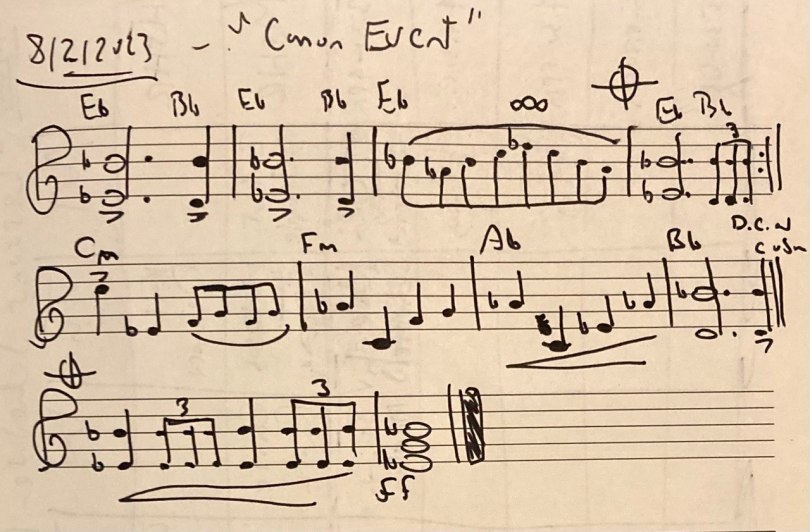 8/2/2023 - "Canon Event"
Eb Bb Eb Bb Eb Eb Bb
3
D.C. al
Cm Fm Ab Bb
3 3
ff